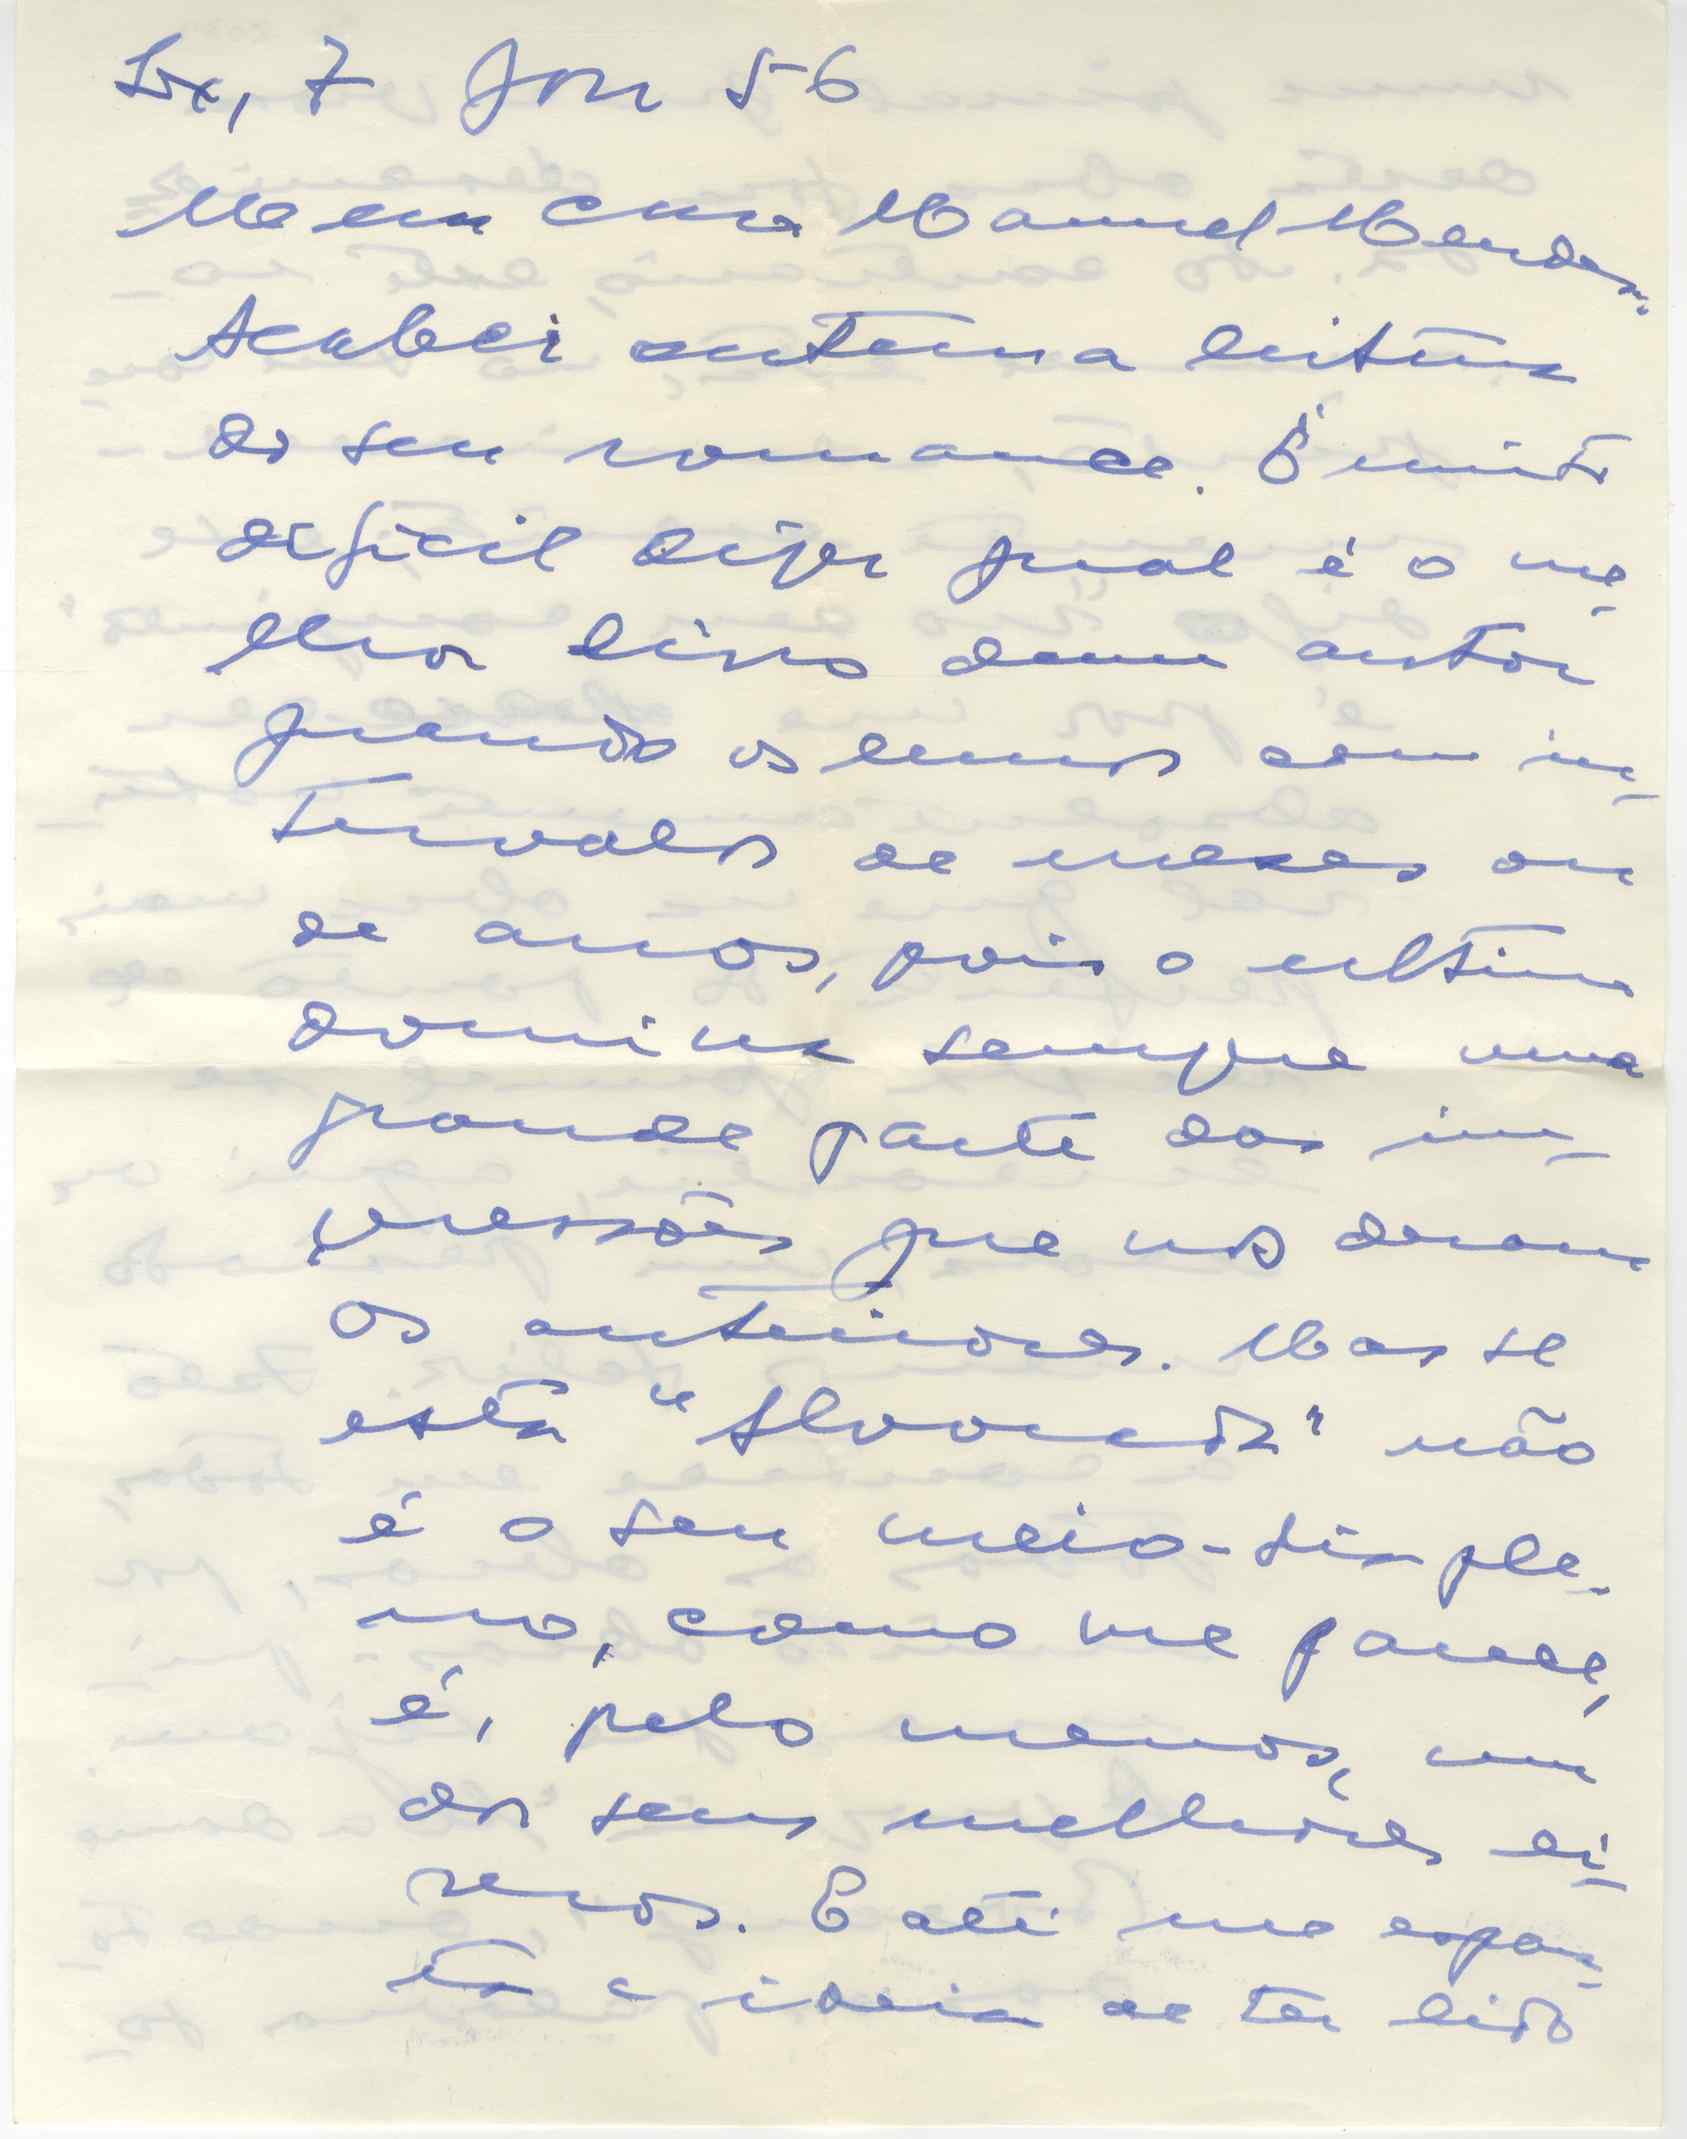 Lx, 7 Jan 56
Meu caro Manuel Mendes:
Acabei ontem a leitura
do seu romance. É muito
dificil dizer qual é o me-
lhor livro dum autor
quando os lemos com in-
tervalos de meses ou
de anos, pois o ultimo
domina sempre uma
grande parte das im-
pressões que nos deram
os anteriores. Mas se
esta "Alvorada" não
é o seu meio-
como me parece,
é, pelo menos, um
dos seus melhores li-
vros. E até me espan-
ta a ideia de ter lido